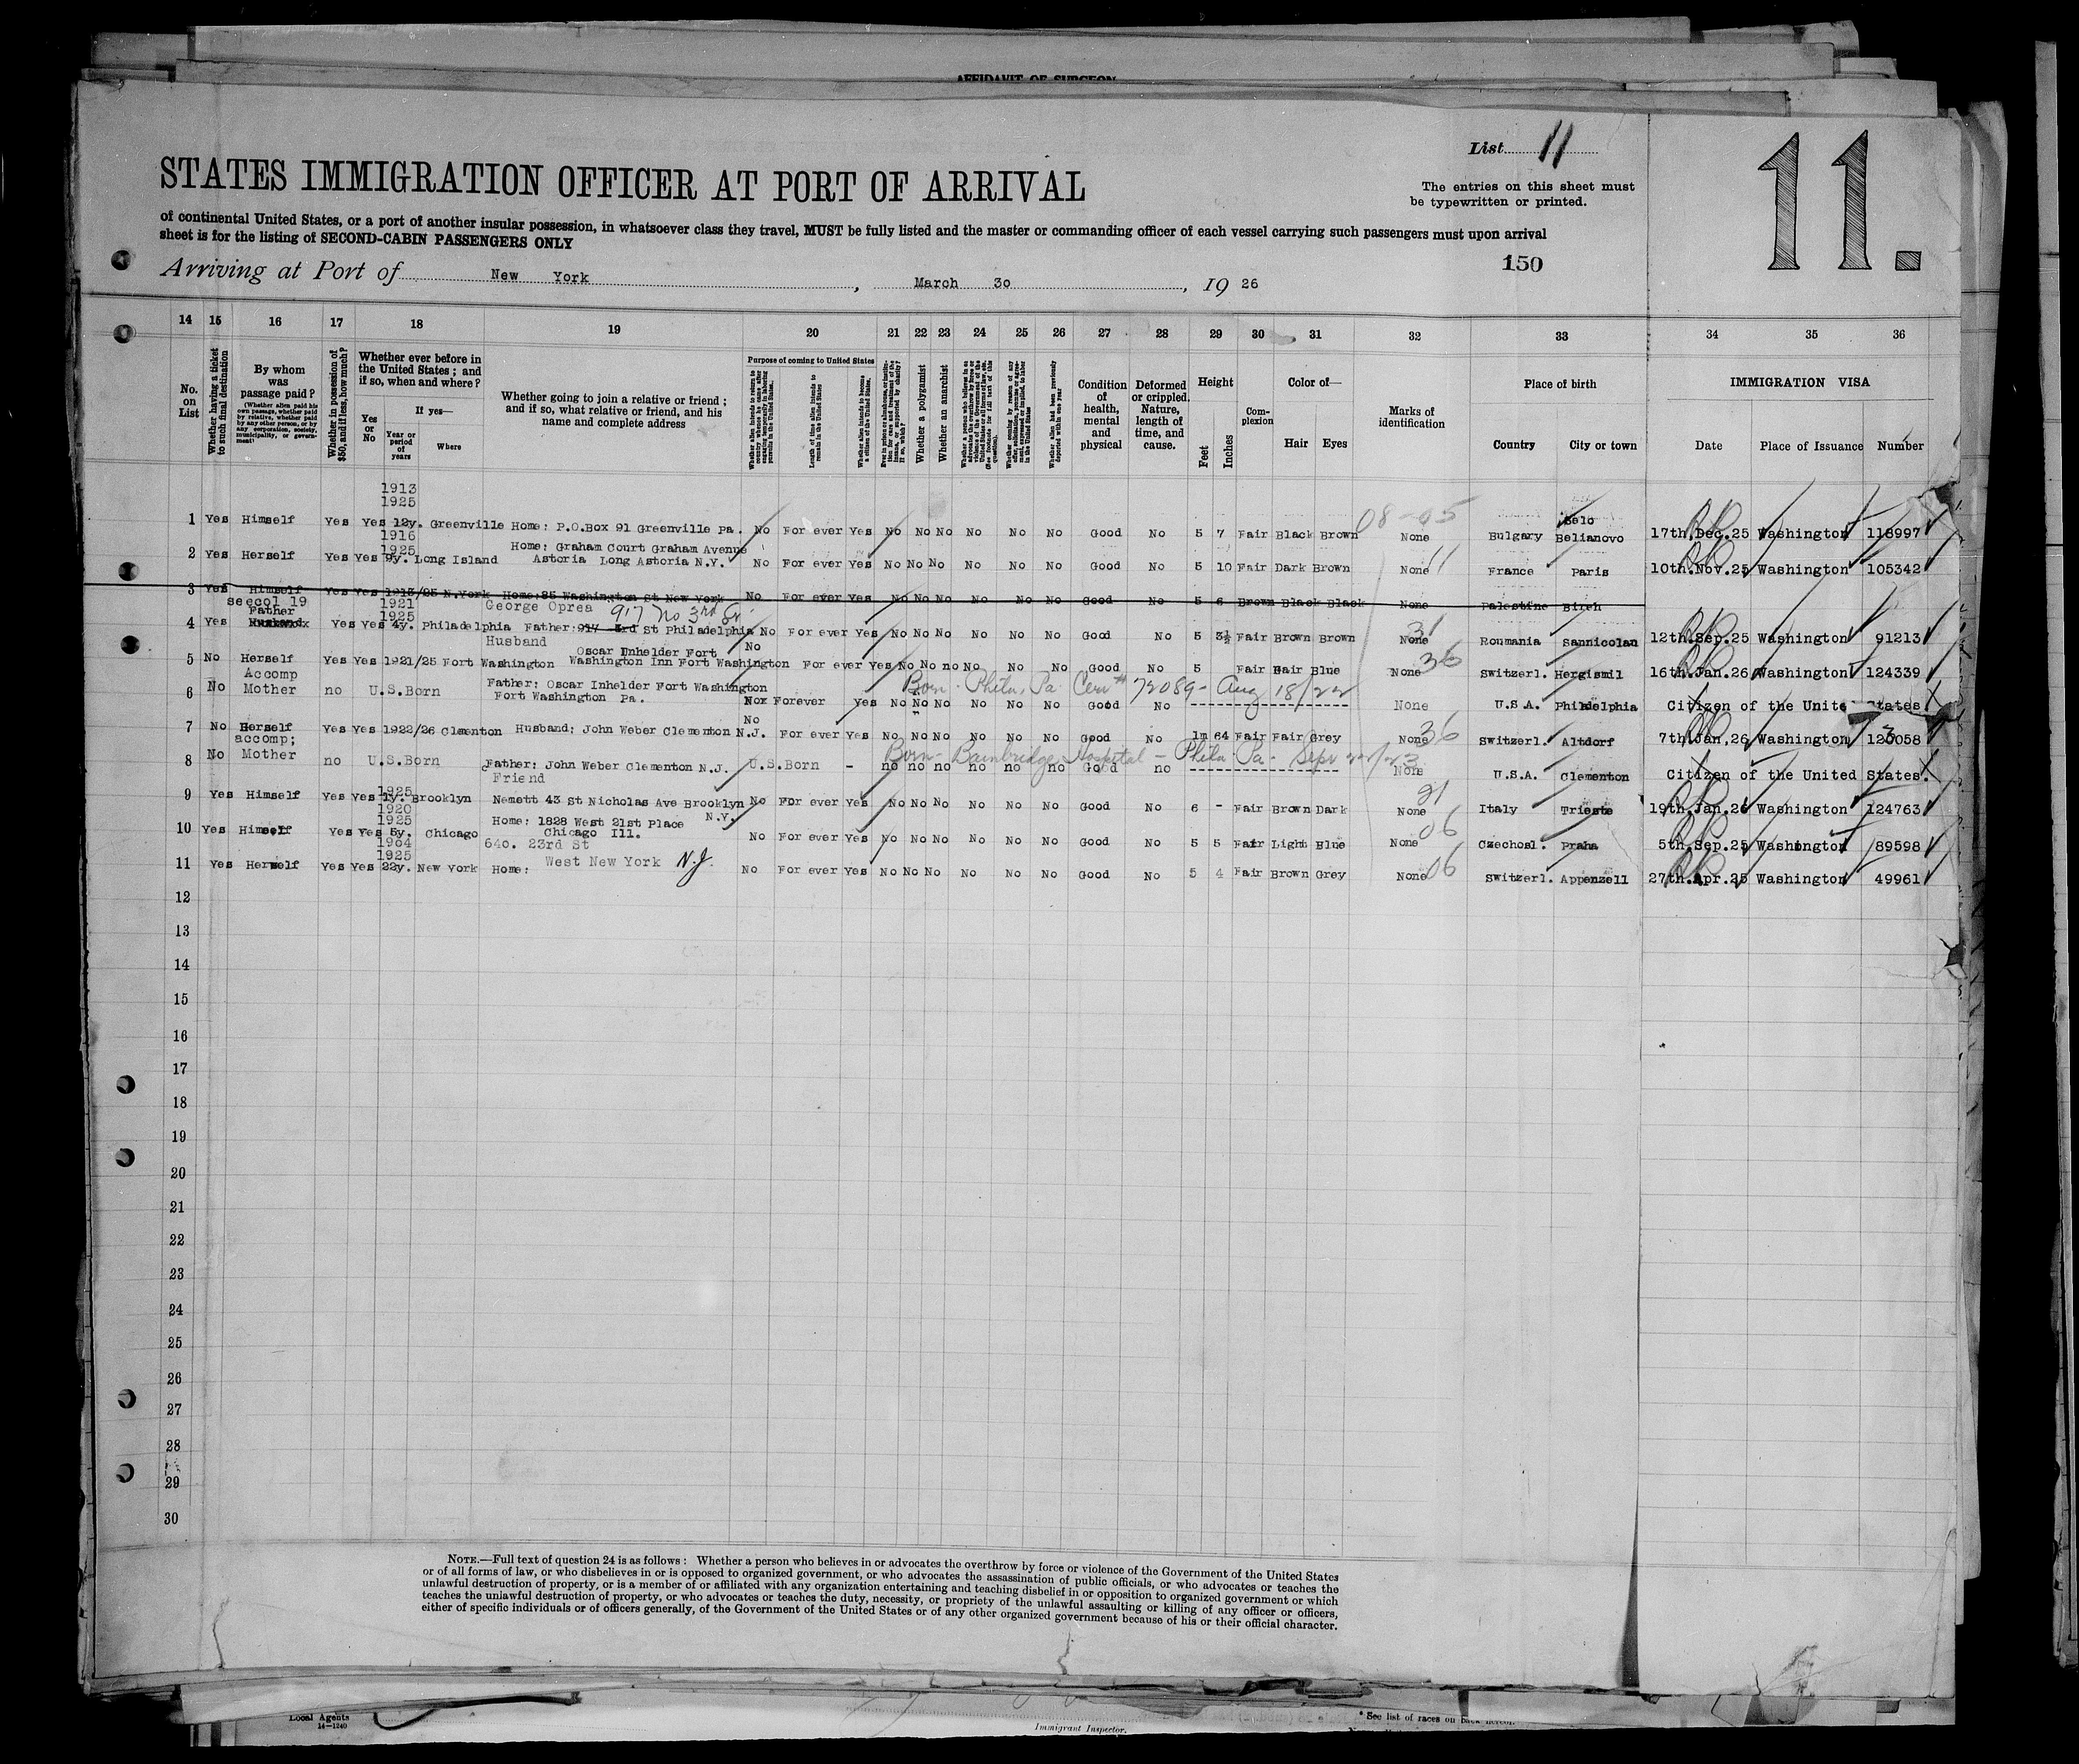 AFFIDAVIT OF SURGEON
List 11
11.
STATES IMMIGRATION OFFICER AT PORT OF ARRIVAL
The entries on this sheet must
be typewritten or printed.
of continental United States, or a port of another insular possession, in whatsoever class they travel, MUST be fully listed and the master or commanding officer of each vessel carrying such passengers must upon arrival
sheet is for the listing of SECOND-CABIN PASSENGERS ONLY
150
Arriving at Port of New York, March 30, 19 26
14 15 16 17 18 19 20 21 22 23 24 25 26 27 28 29 30 31 32 33 34 35 36
No. on List
Whether having a ticket to such final destination
By whom was passage paid?
(Whether alien paid his own passage, whether paid by relative, whether paid by any other person, or by any corporation, society, municipality, or government)
Whether in possession of $50, and if less, how much?
Whether ever before in the United States; and if so, when and where?
Yes or No
If yes—
Year or period of years
Where
Whether going to join a relative or friend; and if so, what relative or friend, and his name and complete address
Purpose of coming to United States
Whether alien intends to return to country whence he came after engaging temporarily in laboring pursuits in the United States
Length of time alien intends to remain in the United States
Whether alien intends to become a citizen of the United States
Whether a polygamist
Whether an anarchist
Whether alien had been previously deported within one year
Condition of health, mental and physical
Deformed or crippled. Nature, length of time, and cause.
Height
Feet
Inches
Complexion
Color of—
Hair
Eyes
Marks of identification
Place of birth
Country
City or town
IMMIGRATION VISA
Date
Place of Issuance
Number
1913
1925
08-05
1 Yes Himself Yes Yes 12y. Greenville Home: P.O.Box 91 Greenville Pa. No For ever Yes No No No No No No Good No 5 7 Fair Black Brown None Bulgary Belo Belianovo 17th.Dec.25 Washington 118997
1916
1925
2 Yes Herself Yes Yes 9y. Long Island Home: Graham Court Graham Avenue Astoria Long Astoria N.Y. No For ever Yes No No No No No No Good No 5 10 Fair Dark Brown None 11 France Paris 10th.Nov.25 Washington 105342
3 Yes Himself Yes Yes 1913/25 N.York Home: 85 Washington St New York No For ever Yes No No No No No No Good No 5 6 Brown Black Black None Palestine Bireh
see col 19
Father
1921
1925
George Oprea 917 No 3rd St.
4 Yes Husband Yes Yes 4y. Philadelphia Father: 917 3rd St Philadelphia No For ever Yes No No No No No No Good No 5 3½ Fair Brown Brown None 31 Roumania Sannicolau 12th.Sep.25 Washington 91213
Husband
5 No Herself Yes Yes 1921/25 Fort Washington Oscar Inhelder Fort Washington Inn Fort Washington No For ever Yes No No no No No No Good No 5 Fair Hair Blue None 36 Switzerl. Hergismil 16th.Jan.26 Washington 124339
Accomp
Born - Phila, Pa Cert # 72089 - Aug 18/22
6 No Mother no U.S.Born Father: Oscar Inhelder Fort Washington Fort Washington Pa. Nox Forever Yes No No No No No No Good No None U.S.A. Philadelphia Citizen of the United States
7 No Herself Yes Yes 1922/26 Clementon Husband: John Weber Clementon N.J. No For ever Yes No No No No No No Good No 1m 64 Fair Fair Grey None 36 Switzerl. Altdorf 7th.Jan.26 Washington
accomp;
Born - Bainbridge Hospital - Phila Pa - Sept 22/23
8 No Mother no U.S.Born Father: John Weber Clementon N.J. U.S.Born - no no no no no no Good no None U.S.A. Clementon Citizen of the United States.
Friend
1925
9 Yes Himself Yes Yes 1y. Brooklyn Nemett 43 St Nicholas Ave Brooklyn N.Y. No For ever Yes No No No No No No Good No 6 - Fair Brown Dark None 21 Italy Trieste 19th.Jan.26 Washington 124763
1920
1925
10 Yes Himself Yes Yes 5y. Chicago Home: 1828 West 21st Place Chicago Ill. No For ever Yes No No No No No No Good No 5 5 Fair Light Blue None 06 Czechosl. Praha 5th.Sep.25 Washington 89598
1904
1925
11 Yes Herself Yes Yes 22y. New York Home: 640. 23rd St West New York N.J. No For ever Yes No No No No No No Good No 5 4 Fair Brown Grey None 06 Switzerl. Appenzell 27th.Apr.25 Washington 49961
12
13
14
15
16
17
18
19
20
21
22
23
24
25
26
27
28
29
30
NOTE.—Full text of question 24 is as follows: Whether a person who believes in or advocates the overthrow by force or violence of the Government of the United States
or of all forms of law, or who disbelieves in or is opposed to organized government, or who advocates the assassination of public officials, or who advocates or teaches the
unlawful destruction of property, or is a member of or affiliated with any organization entertaining and teaching disbelief in or opposition to organized government or which
teaches the unlawful destruction of property, or who advocates or teaches the duty, necessity, or propriety of the unlawful assaulting or killing of any officer or officers,
either of specific individuals or of officers generally, of the Government of the United States or of any other organized government because of his or their official character.
Local Agents
14—1240
Immigrant Inspector.
* See list of races on back hereof.